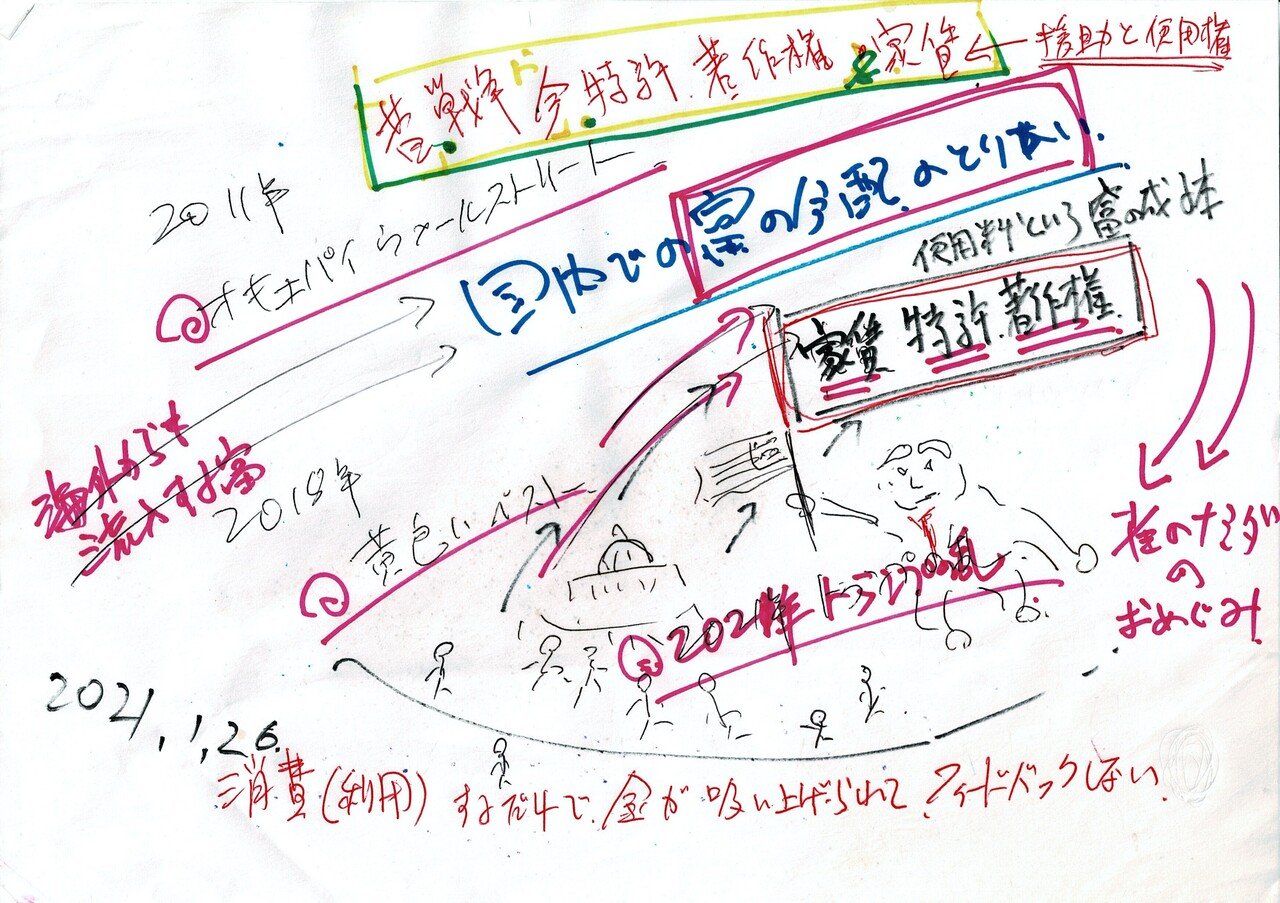 昔戦争 今特許.著作権 と家賃 ← 援助と使用権
2011年
オキュパイウォールストリート
国内での富の分配のとりあい.
使用料という富の成
家賃 特許.著作権
海外からも
流入する富
2018年
黄色いベスト
2021年 トランプの乱
のナミダ
の
おめぐみ
2021.1.26.
消費(利用)するだけで.金が吸い上げられてフィードバックしない.